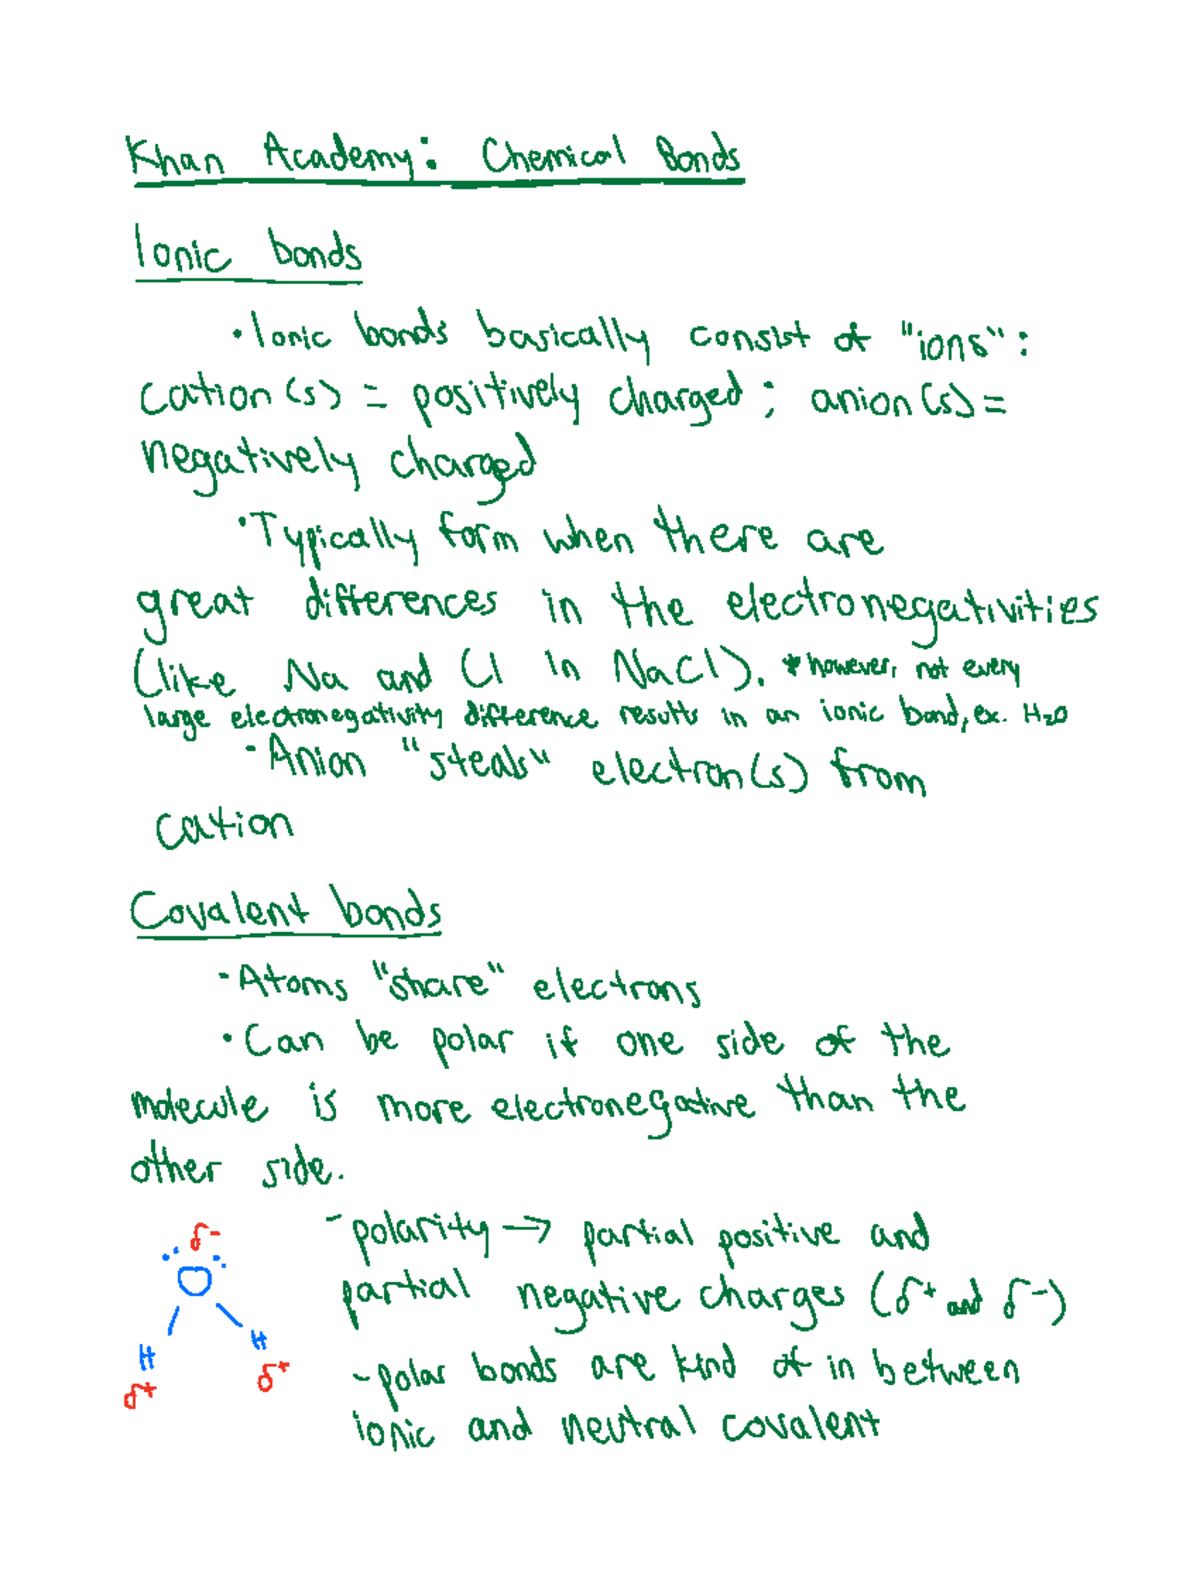 Khan Academy: Chemical Bonds
Ionic bonds
• Ionic bonds basically consist of "ions":
cation(s) = positively charged; anion(s) =
negatively charged
• Typically form when there are
great differences in the electronegativities
(like Na and Cl in NaCl). *however, not every
large electronegativity difference results in an ionic bond, ex. H₂O
• Anion "steals" electron(s) from
cation
Covalent bonds
• Atoms "share" electrons
• Can be polar if one side of the
molecule is more electronegative than the
other side.
- polarity → partial positive and
partial negative charges (δ⁺ and δ⁻)
- polar bonds are kind of in between
ionic and neutral covalent
δ⁻
O
H H
δ⁺ δ⁺